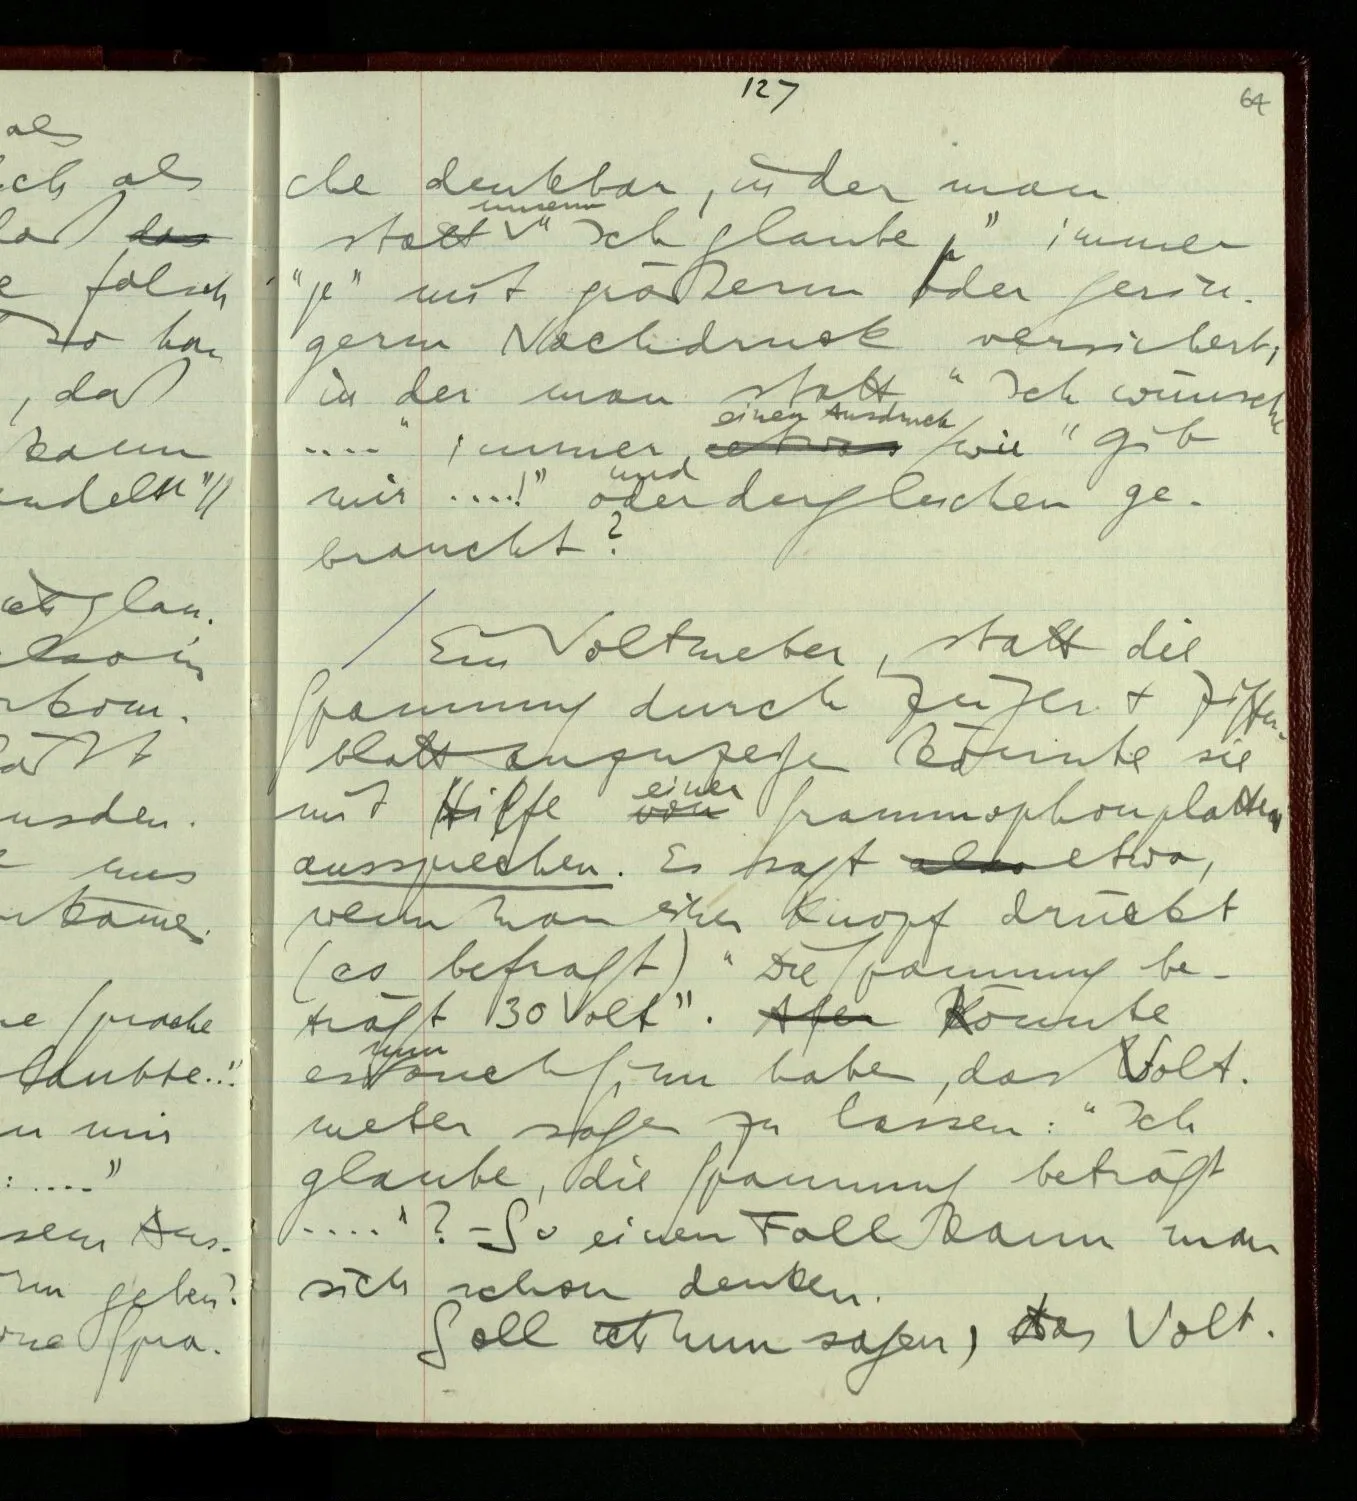 127
64
als
ich als
daß das
falsch
so kan
, daß
kann
andelst"//
ich glau-
also in
rkom-
läßt
usden.
uns
käme.
ne Sprache
laubte.."
n mir
: ...."
sem Aus-
rm geben?
ine Spra-
che denkbar, in der man
unserm
statt "Ich glaube p" immer
"p" mit größerm oder gerin-
germ Nachdruck versichert;
in der man statt "Ich wünsche
einen Ausdruck
...." immer etwas wie "Gib
und
mir ....!" oder dergleichen ge-
braucht?
Ein Voltmeter, statt die
Spannung durch Zeiger + Ziffer-
blatt anzuzeigen könnte sie
einer
mit Hilfe von Grammophonplatten
aussprechen. Es sagt also etwa,
wenn man einen Knopf drückt
(es befragt) "Die Spannung be-
trägt 30 Volt". Aber Könnte
nun
es auch Sinn haben, das Volt-
meter sagen zu lassen: "Ich
glaube, die Spannung beträgt
...."? – So einen Fall kann man
sich schon denken.
Soll ich nun sagen, das Volt-